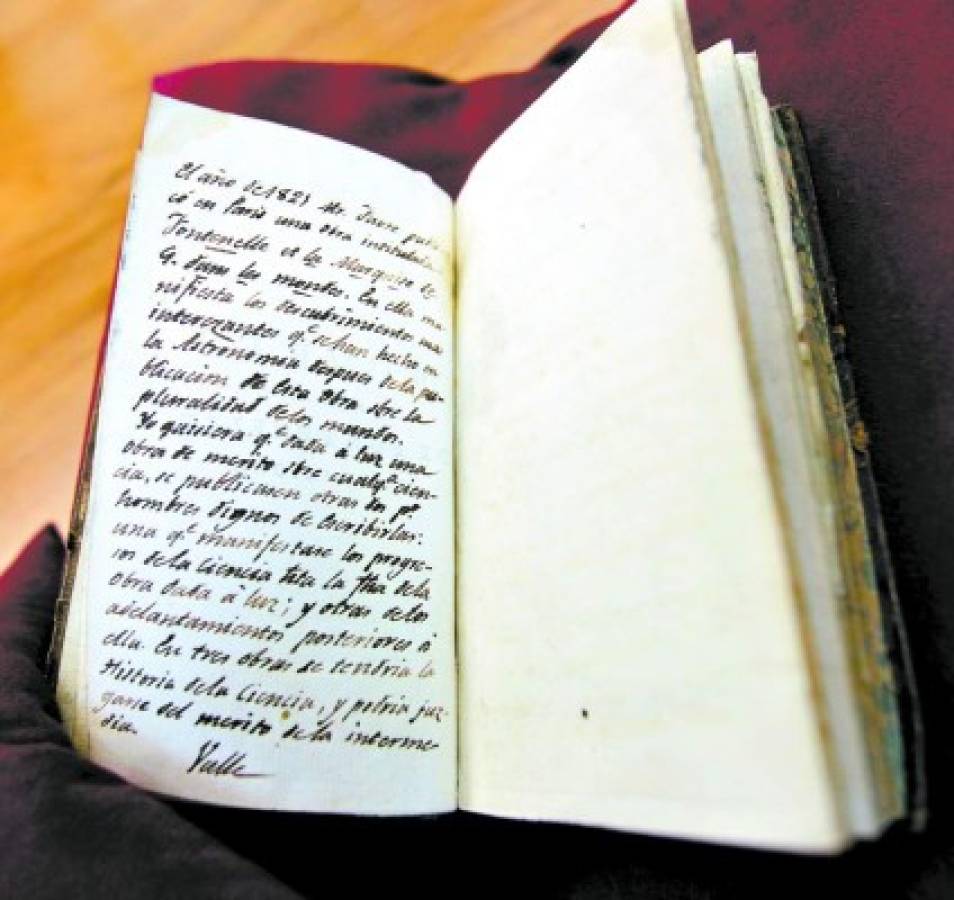 El año de 1821 Mr. Favre publi-
có en Paris una obra intitulada
Fontenelle et la Marquise de
G. dans les mondes. En ella ma-
nifiesta los descubrimientos mas
interezantes q.e se han hecho en
la Astronomia despues de la pu-
blicacion de esta obra sbre la
pluralidad de los mundos.
Yo quisiera q.e dada à luz una
obra de merito sbre cualq.a cien-
cia, se publicasen otras dos p.r
hombres dignos de escribirlas:
una q.e manifestase los progre-
sos de la ciencia hta la fha de la
obra dada à luz; y otras de los
adelantamientos posteriores à
ella. En tres obras se tendria la
Historia de la Ciencia, y podria juz-
garse del merito de la interme-
dia.
Valle